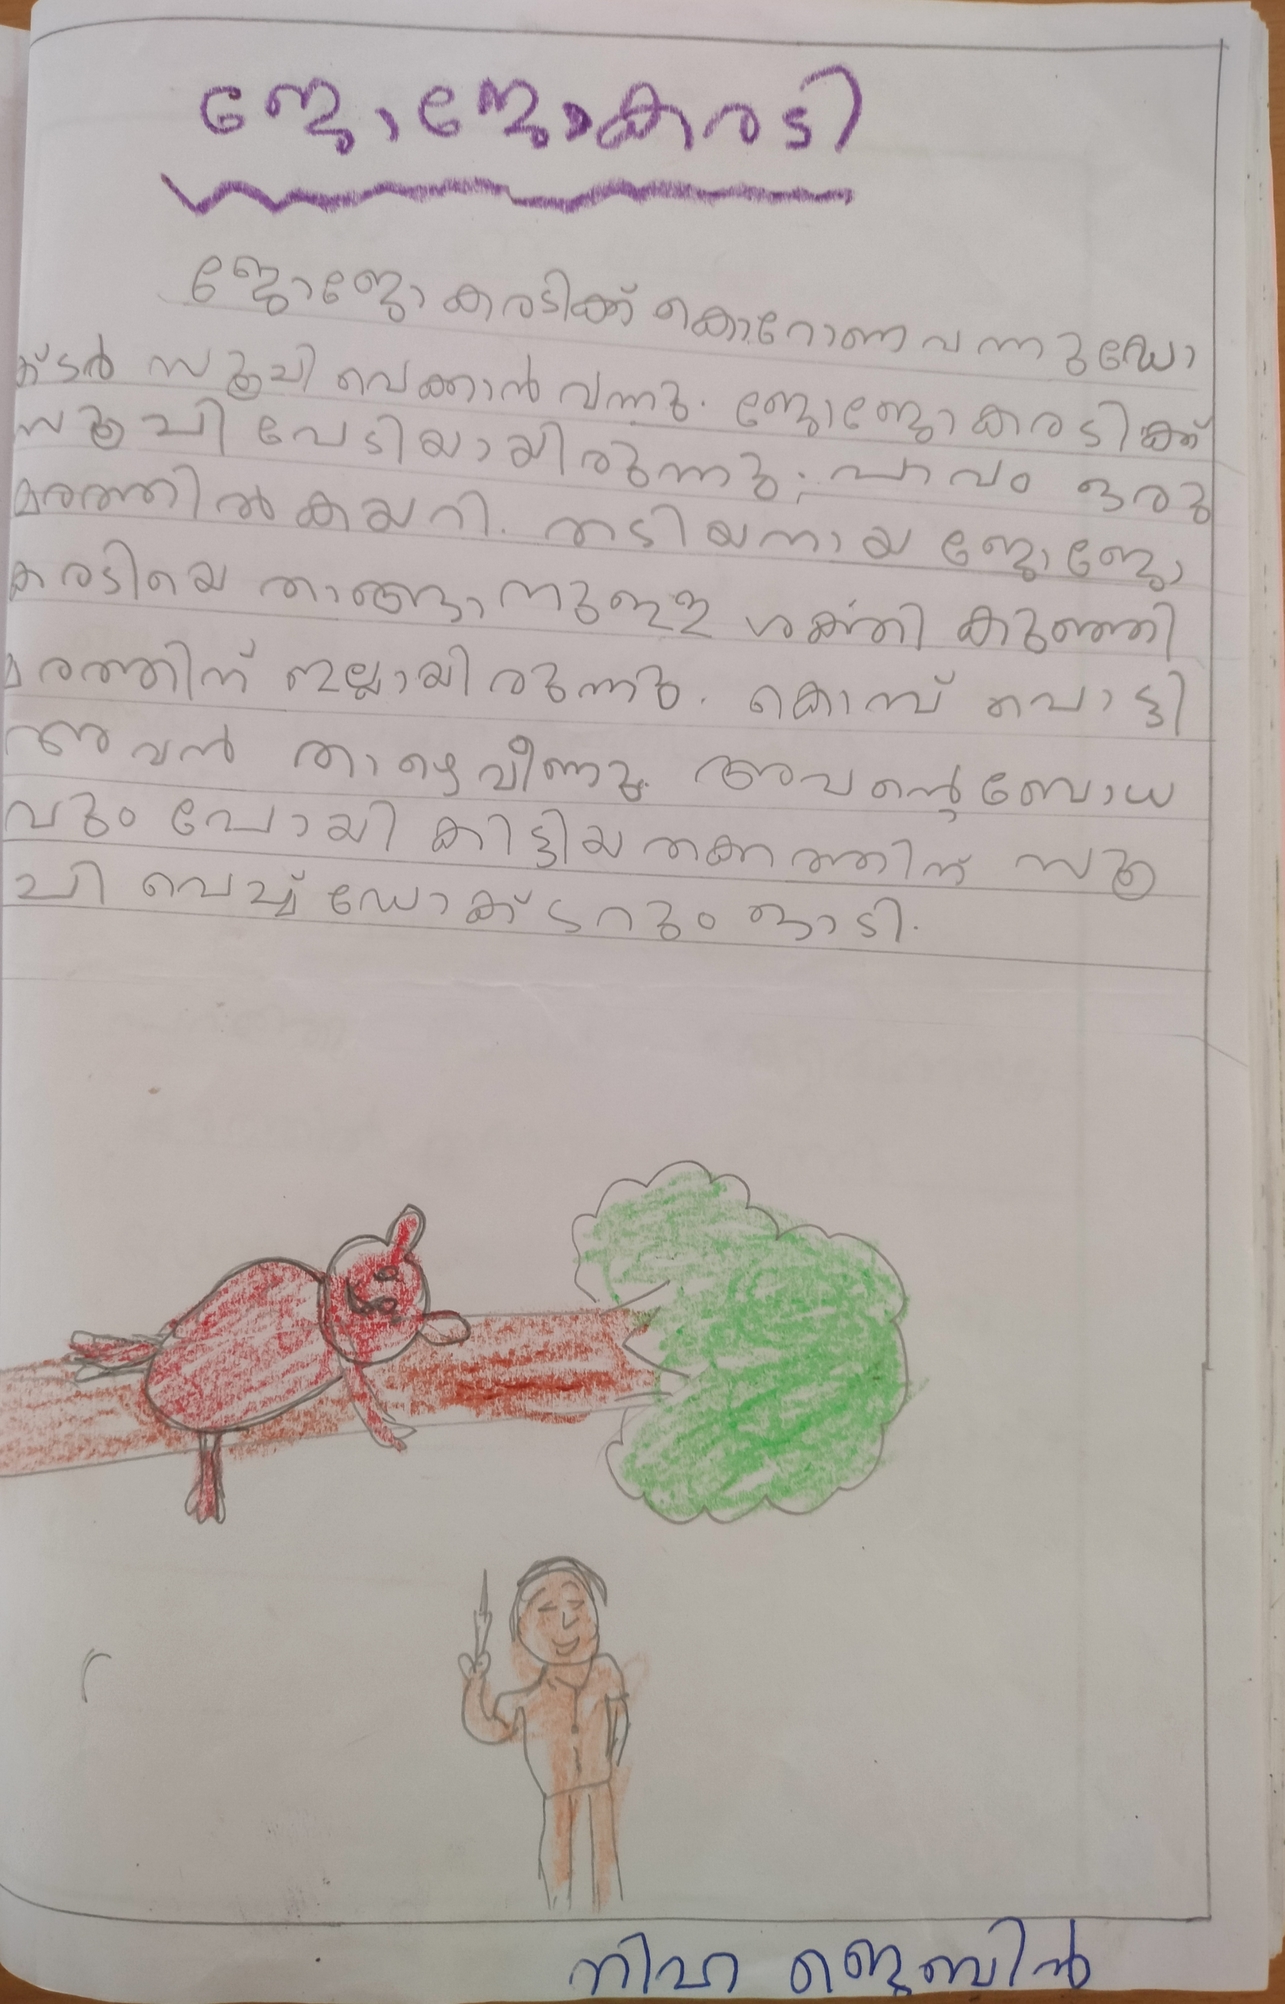 ജോജോകരടി
ജോജോ കരടിക്ക് കൊറോണ വന്നു ഡോ
ക്ടർ സൂചി വെക്കാൻ വന്നു. ജോജോകരടിക്ക്
സൂചി പേടിയായിരുന്നു. പാവം ഒരു
മരത്തിൽ കയറി. തടിയനായ ജോജോ
കരടിയെ താങ്ങാനുളള ശക്തി കുഞ്ഞി
മരത്തിന് ഇല്ലായിരുന്നു. കൊമ്പ് പൊട്ടി
അവൻ താഴെ വീണു. അവന്റെ ബോധ
വും പോയി കിട്ടിയ തക്കത്തിന് സൂ
ചി വെച്ച് ഡോക്ടറും ഓടി.
നിഹ ജെബിൻ